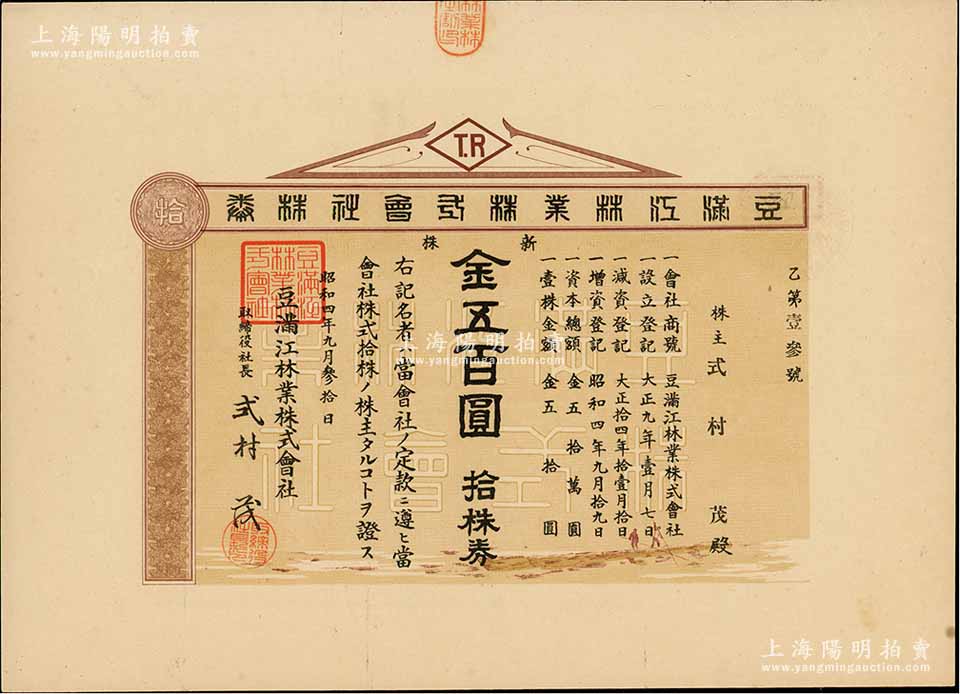 上海陽明拍賣
www.yangmingauction.com
T.R
豆滿江林業株式會社株券
拾
乙第壹參號
株主 式村茂殿
一會社商號 豆滿江林業株式會社
一設立登記 大正九年壹月七日
一減資登記 大正拾四年拾壹月拾日
一增資登記 昭和四年九月拾九日
一資本總額 金五拾萬圓
一壹株金額 金五拾圓
新株
金五百圓 拾株券
右記名者ハ當會社ノ定款ニ遵ヒ當
會社株式拾株ノ株主タルコトヲ證ス
昭和四年九月參拾日
豆滿江林業株式會社
取締役社長 式村茂
豆滿江林業株式會社
上海陽明拍賣
www.yangmingauction.com
上海陽明拍賣
www.yangmingauction.com